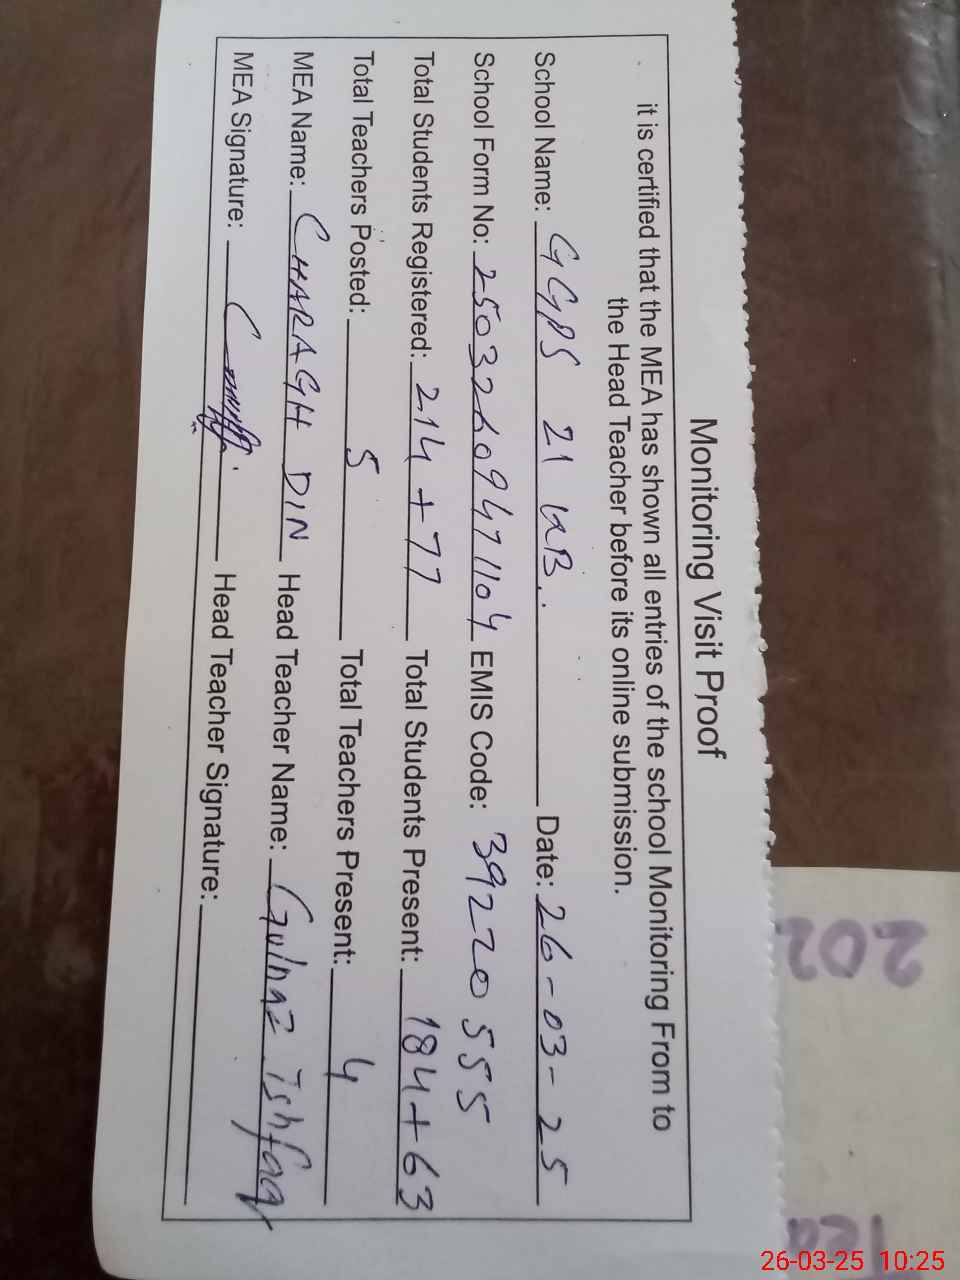 Monitoring Visit Proof
it is certified that the MEA has shown all entries of the school Monitoring From to
the Head Teacher before its online submission.
School Name: GGPS 21 UB. Date: 26-03-25
School Form No: 25032609471104 EMIS Code: 39220555
Total Students Registered: 214 + 77 Total Students Present: 184 + 63
Total Teachers Posted: 5 Total Teachers Present: 4
MEA Name: CHARAGH DIN Head Teacher Name: Gulnaz Ishfaq
MEA Signature: Head Teacher Signature:
202
26-03-25 10:25